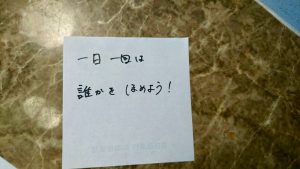 一日一回は
誰かをほめよう!